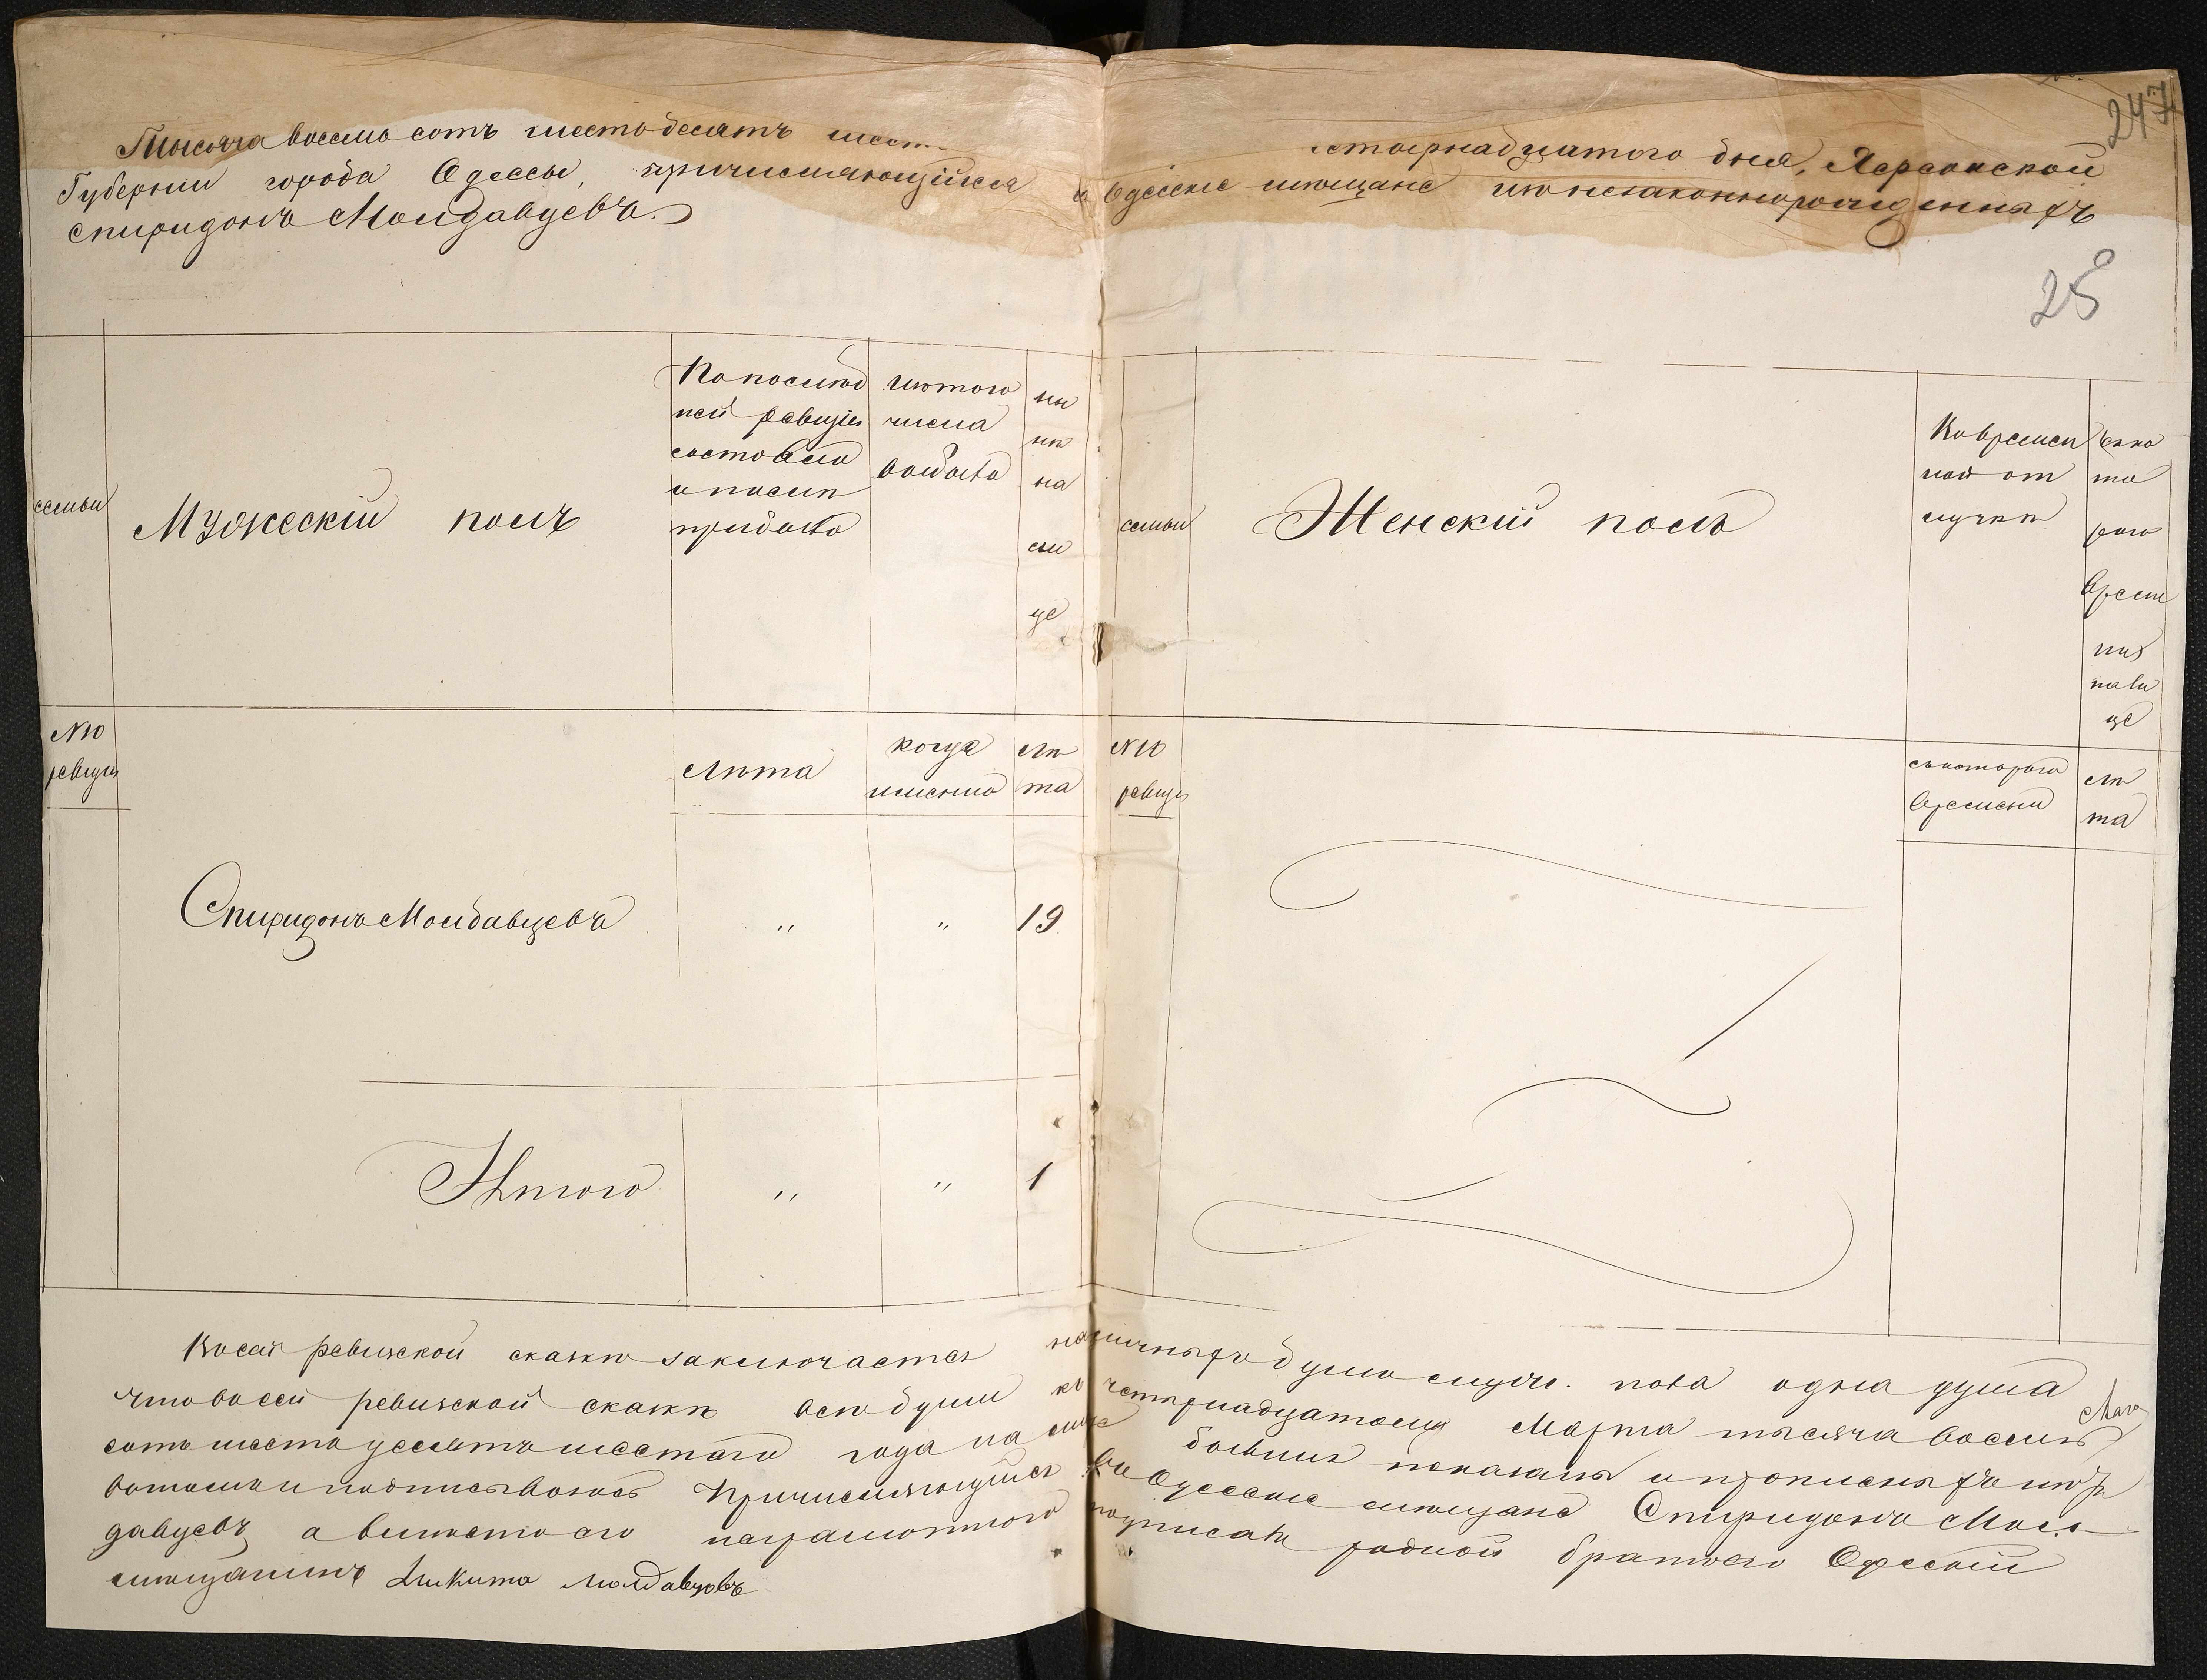 247
Тысяча восемь сотъ шестьдесятъ шест
етвернадцатого дня, Херсонской
Губерніи города Одессы, причисляющійся в Одесскіе мѣщане изъ незаконнорожденныхъ
Спиридонъ Молдавцевъ.
28
семьи
Мужескій полъ
По послѣд
ней ревизіи
состояло
и послѣ
прибыло
изъ того
числа
выбыло
ны
нѣ
на
ли
це
семьи
Женскій полъ
Во времен
ной от
лучкѣ
рого
време
ни
нали
це
№
ревизіи
лѣта
когда
именно
лѣ
та
№
ревизіи
съ котораго
времени
лѣ
та
Спиридонъ Молдавцевъ " " 19
Итого " " 1
В сей ревизской сказкѣ заключается наличныхъ душъ муж. пола одна душа
что в сей ревизской сказкѣ всѣ души къ четырнадцатому Марта тысяча восемь
сотъ шестьдесятъ шестаго года на лице бывшія показаны и прописныхъ нѣтъ
в томъ и подписываюсь Причисляющійся въ Одесскіе мѣщане Спиридонъ Мол
давцевъ а вмѣсто его неграмотного подписалъ родной братъ его Одесскій
мѣщанинъ Никита Молдавцовъ